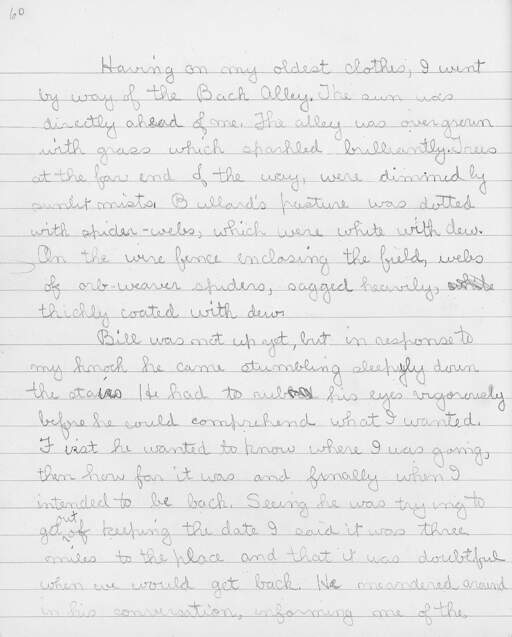 60
Having on my oldest clothes, I went
by way of the Back Alley. The sun was
directly ahead of me. The alley was overgrown
with grass which sparkled brilliantly. Trees
at the far end of the way, were dimmed by
sunlit mists. Bullard's pasture was dotted
with spider-webs, which were white with dew.
On the wire fence enclosing the field, webs
of orb-weaver spiders, sagged heavily,
thickly coated with dew.
Bill was not up yet, but in response to
my knock he came stumbling sleepyly down
the stairs He had to rub his eyes vigorously
before he could comprehend what I wanted.
First he wanted to know where I was going,
then how far it was and finally when I
intended to be back. Seeing he was trying to
get out of keeping the date I said it was three
miles to the place and that it was doubtful
when we would get back. He meandered around
in his conversation, informing me of the